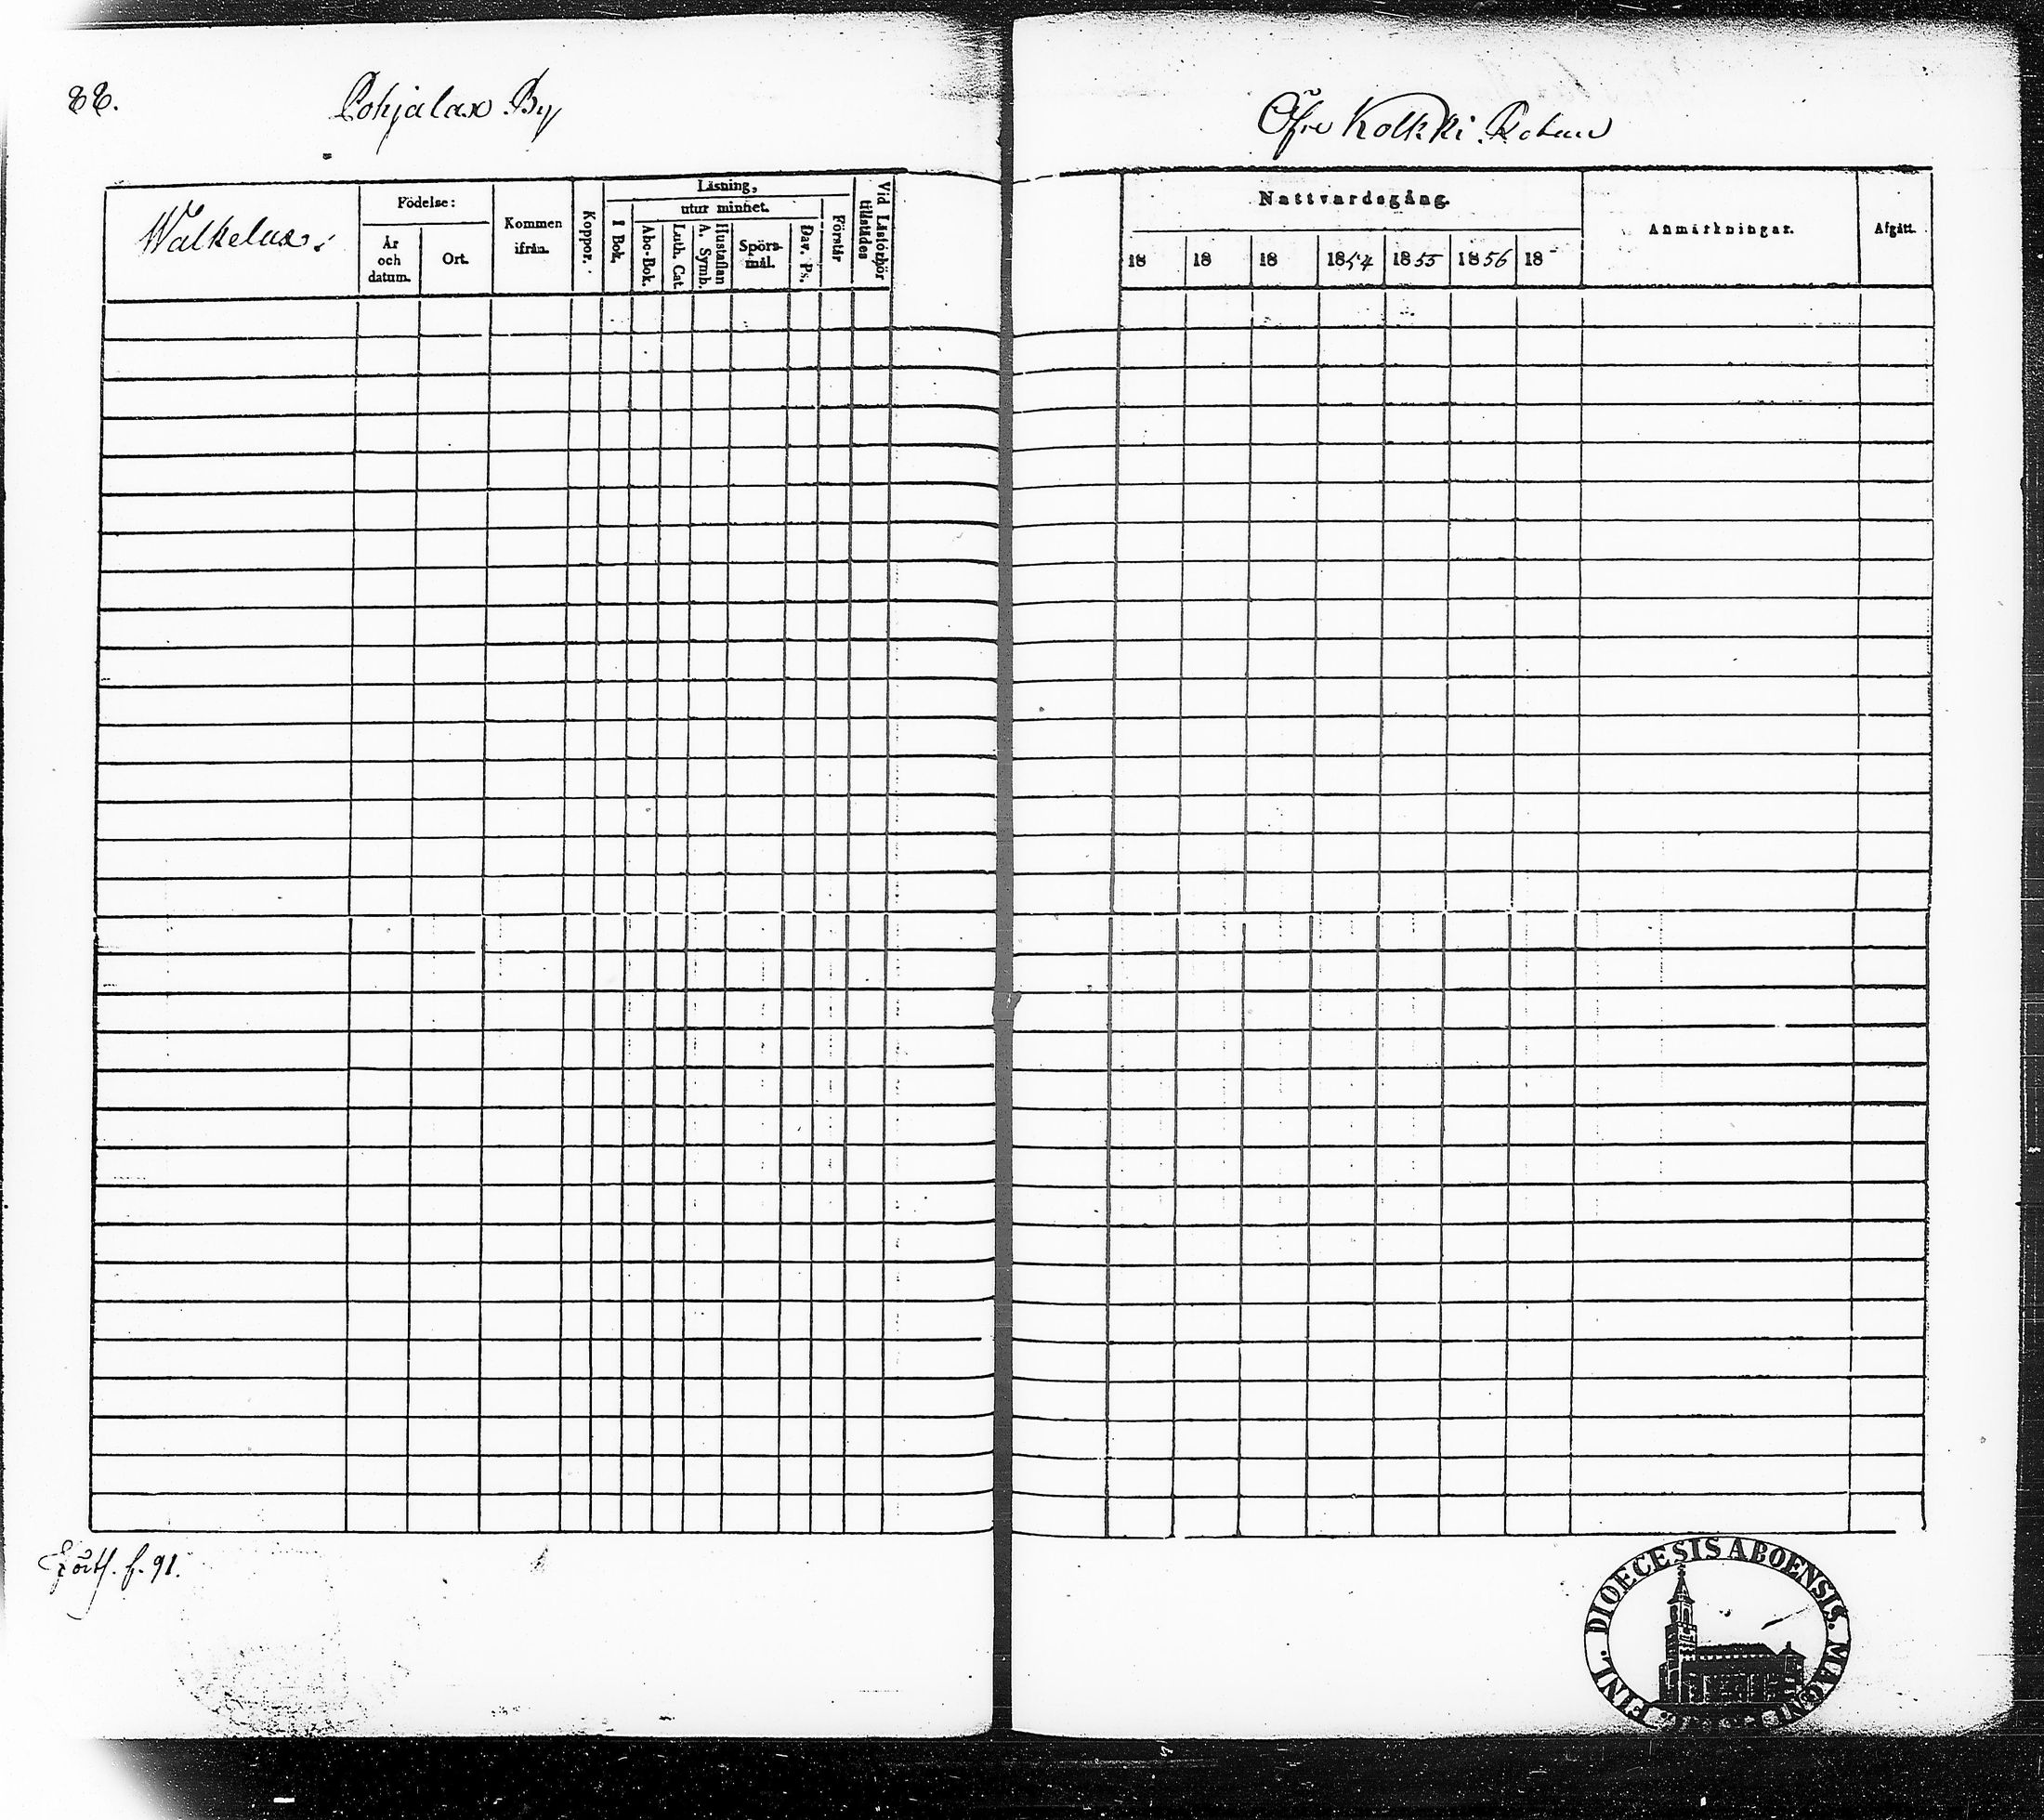 88.
Pohjalax By
Öfre Kolkki Rotan
Walkelax
Födelse:
År och datum.
Ort.
Kommen ifrån.
Koppor.
Läsning,
utur minnet.
I Bok.
Abc-Bok.
Luth. Cat.
Hustaflan A. Symb.
Spörs-mål.
Dav. Ps.
Förstår
Vid Läsförhör tillstädes
Nattvardsgång.
18 18 18 1854 1855 1856 18
Anmärkningar.
Afgått.
f. 91.
FINL. DIOECESIS ABOENSIS. MAGNI